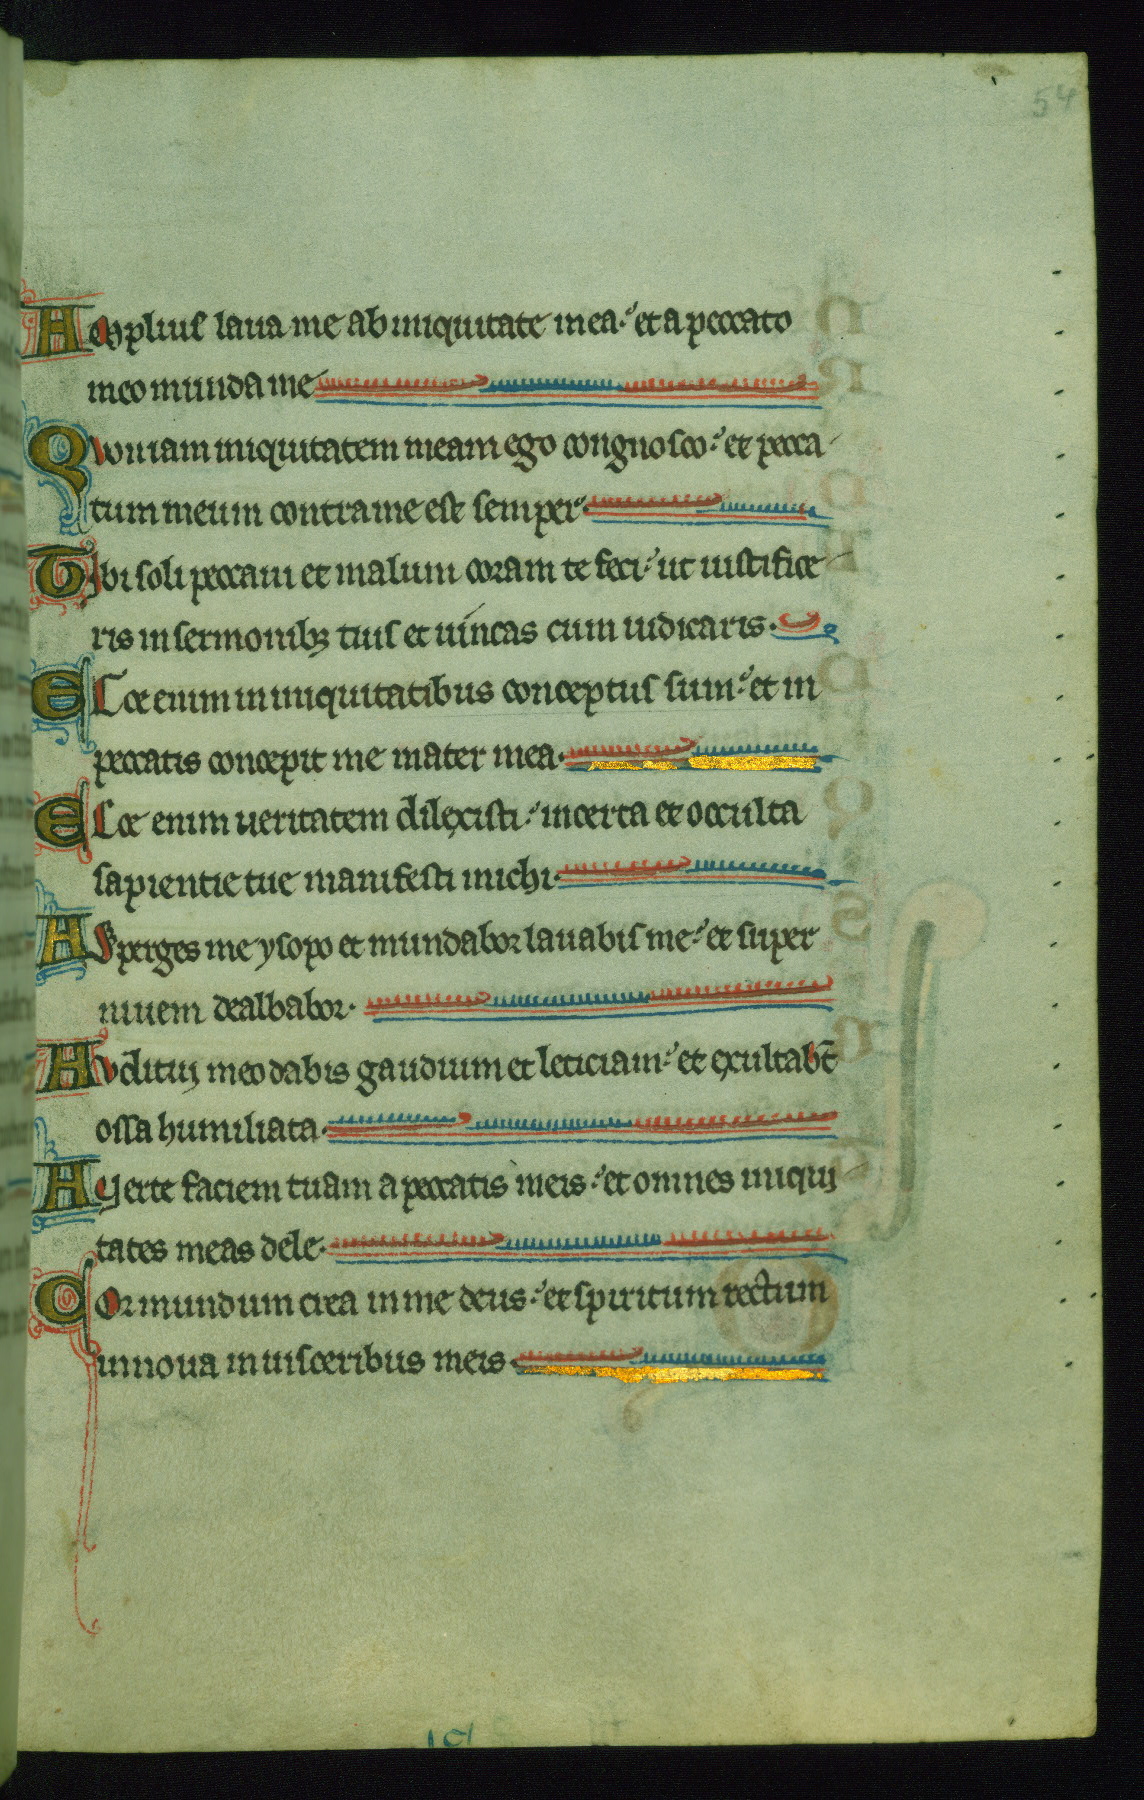 54
Amplius laua me ab iniquitate mea· et a peccato
meo munda me
Quoniam iniquitatem meam ego congnosco· et pecca
tum meum contra me est semper·
Tibi soli peccaui et malum coram te feci· ut iustifice
ris in sermonibꝫ tuis et uincas cum iudicaris·
Ecce enim in iniquitatibus conceptus sum· et in
peccatis concepit me mater mea·
Ecce enim ueritatem dilexisti· incerta et occulta
sapientie tue manifesti michi·
Asperges me ysopo et mundabor lauabis me· et super
niuem dealbabor·
Auditui meo dabis gaudium et leticiam· et exultabt̄
ossa humiliata·
Auerte faciem tuam a peccatis meis· et omnes iniqui
tates meas dele·
Cor mundum crea in me deus· et spiritum rectum
innoua in uisceribus meis·